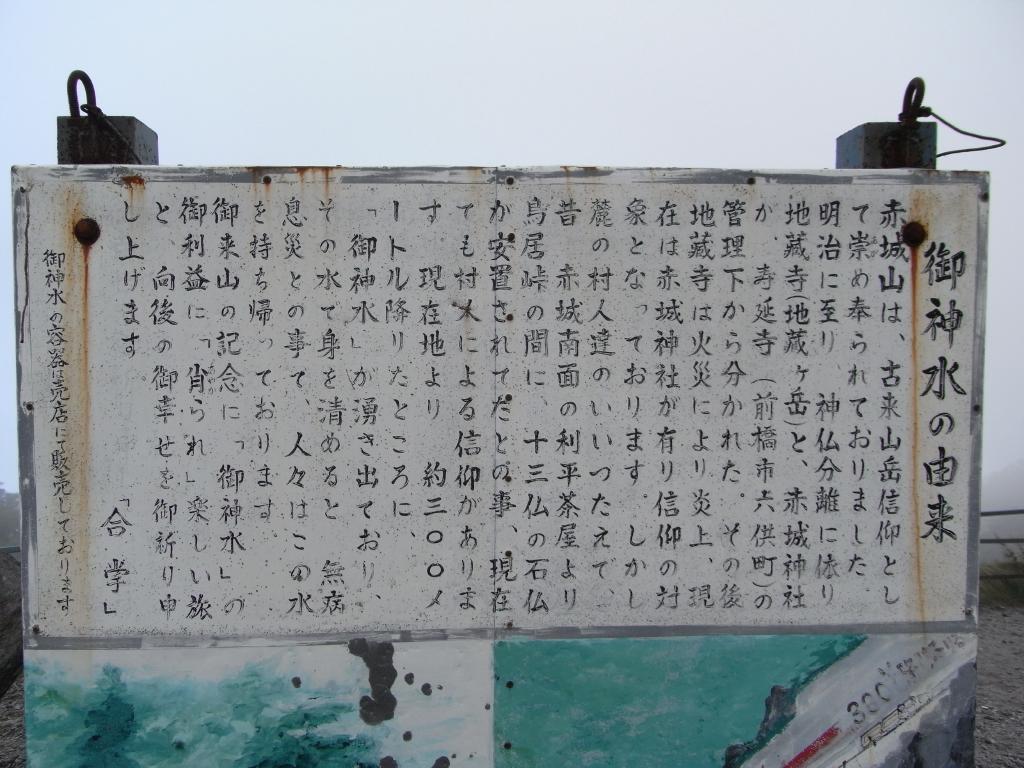 御神水の由来
赤城山は、古来山岳信仰とし
て崇め奉られておりました
明治に至り、神仏分離に依り
地蔵寺(地蔵ヶ岳)と、赤城神社
が、寿延寺(前橋市六供町)の
管理下から分かれた。その後
地蔵寺は火災により炎上、現
在は赤城神社が有り信仰の対
象となっております。しかし
昔 赤城南面の利平茶屋より
麓の村人達のいいつたえで、
鳥居峠の間に、十三仏の石仏
が安置されてたとの事、現在
でも村人による信仰がありま
す 現在地より 約三〇〇メ
ートル降りたところに、
「御神水」が湧き出ており、
その水で身を清めると 無病
息災との事で、人々はこの水
を持ち帰っております
御来山の記念に「御神水」の
御利益に「肖られ」楽しい旅
と、向後の御幸せを御祈り申
し上げます。
「合学」
御神水の容器は売店にて販売しております
300m